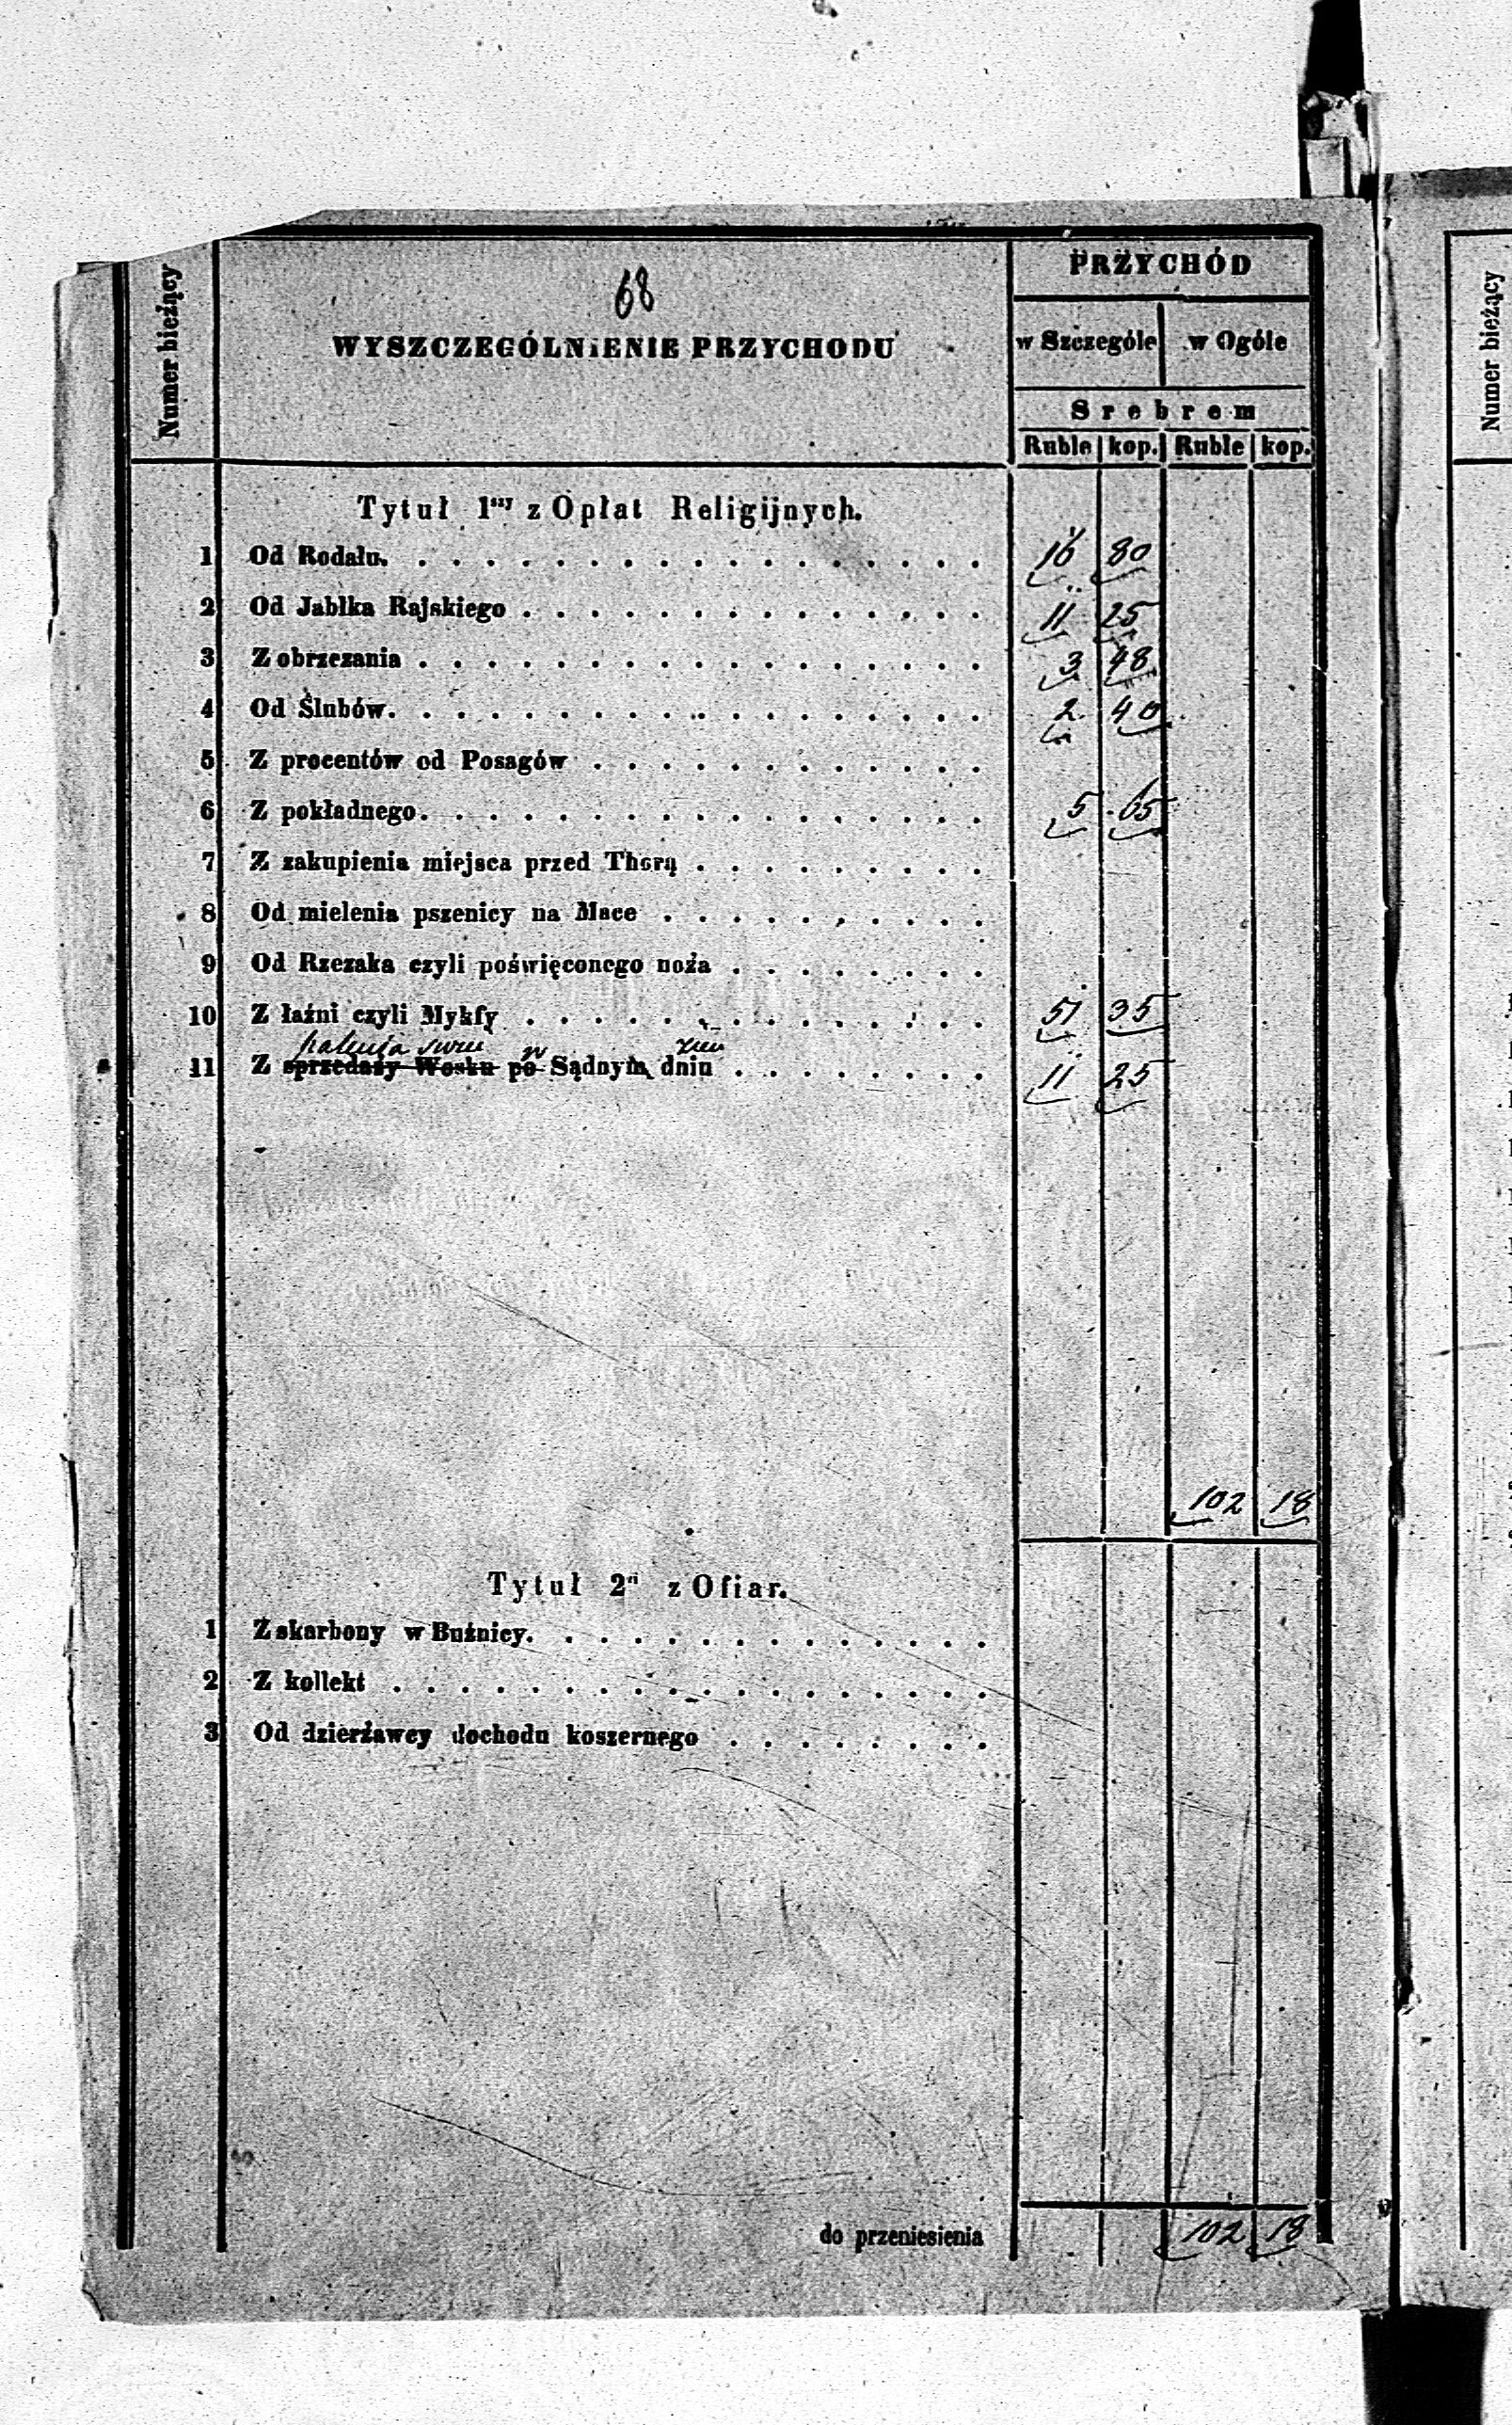 68
Numer bieżący
WYSZCZEGÓLNiENIE PRZYCHODU
PRZYCHÓD
w Szczególe w Ogóle
Srebrem
Ruble kop. Ruble kop.
Tytuł 1szy z Opłat Religijnych.
1 Od Rodału. 16 80
2 Od Jabłka Rajskiego 11 25
3 Z obrzezania 3 48
4 Od Ślubów. 2 40
5 Z procentów od Posagów
6 Z pokładnego. 5 65
7 Z zakupienia miejsca przed Thorą
8 Od mielenia pszenicy na Mace
9 Od Rzezaka czyli poświęconego noża
10 Z łaźni czyli Mykfy 51 35
palenia w
11 Z sprzedaży Wosku po Sądnym dniu 11 25
102 18
Tytuł 2gi z Ofiar.
1 Z skarbony w Buźnicy.
2 Z kollekt
3 Od dzierżawcy dochodu koszernego
do przeniesienia 102 18
Numer bieżący